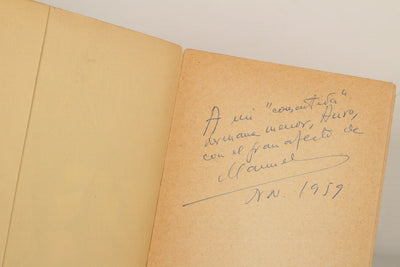 A mi "consentida"
hermana menor, Aura,
con el gran afecto de
Manuel
NN. 1959